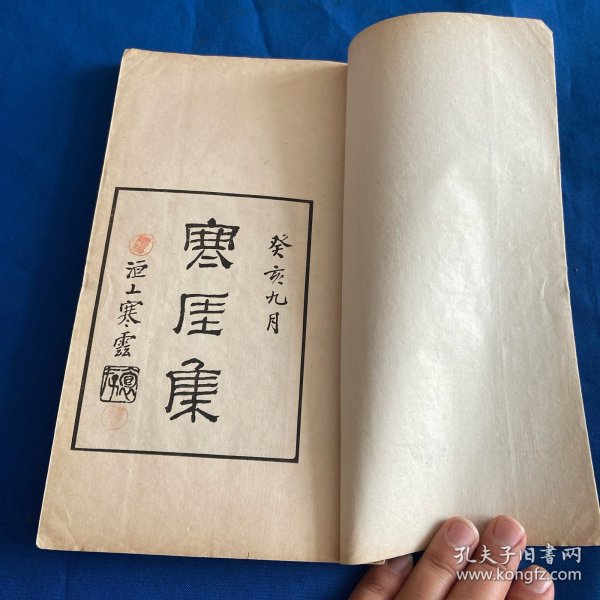 癸亥九月
寒厓集
洹上寒雲
孔夫子旧書网
www.kongfz.com